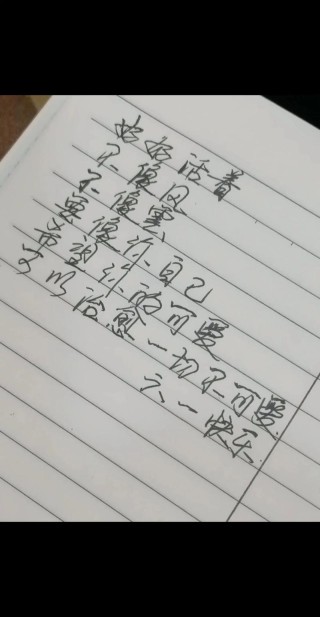 好好活着
不像风
不像雾
要像你自己
希望你的可爱
可以治愈一切不可爱
六一快乐